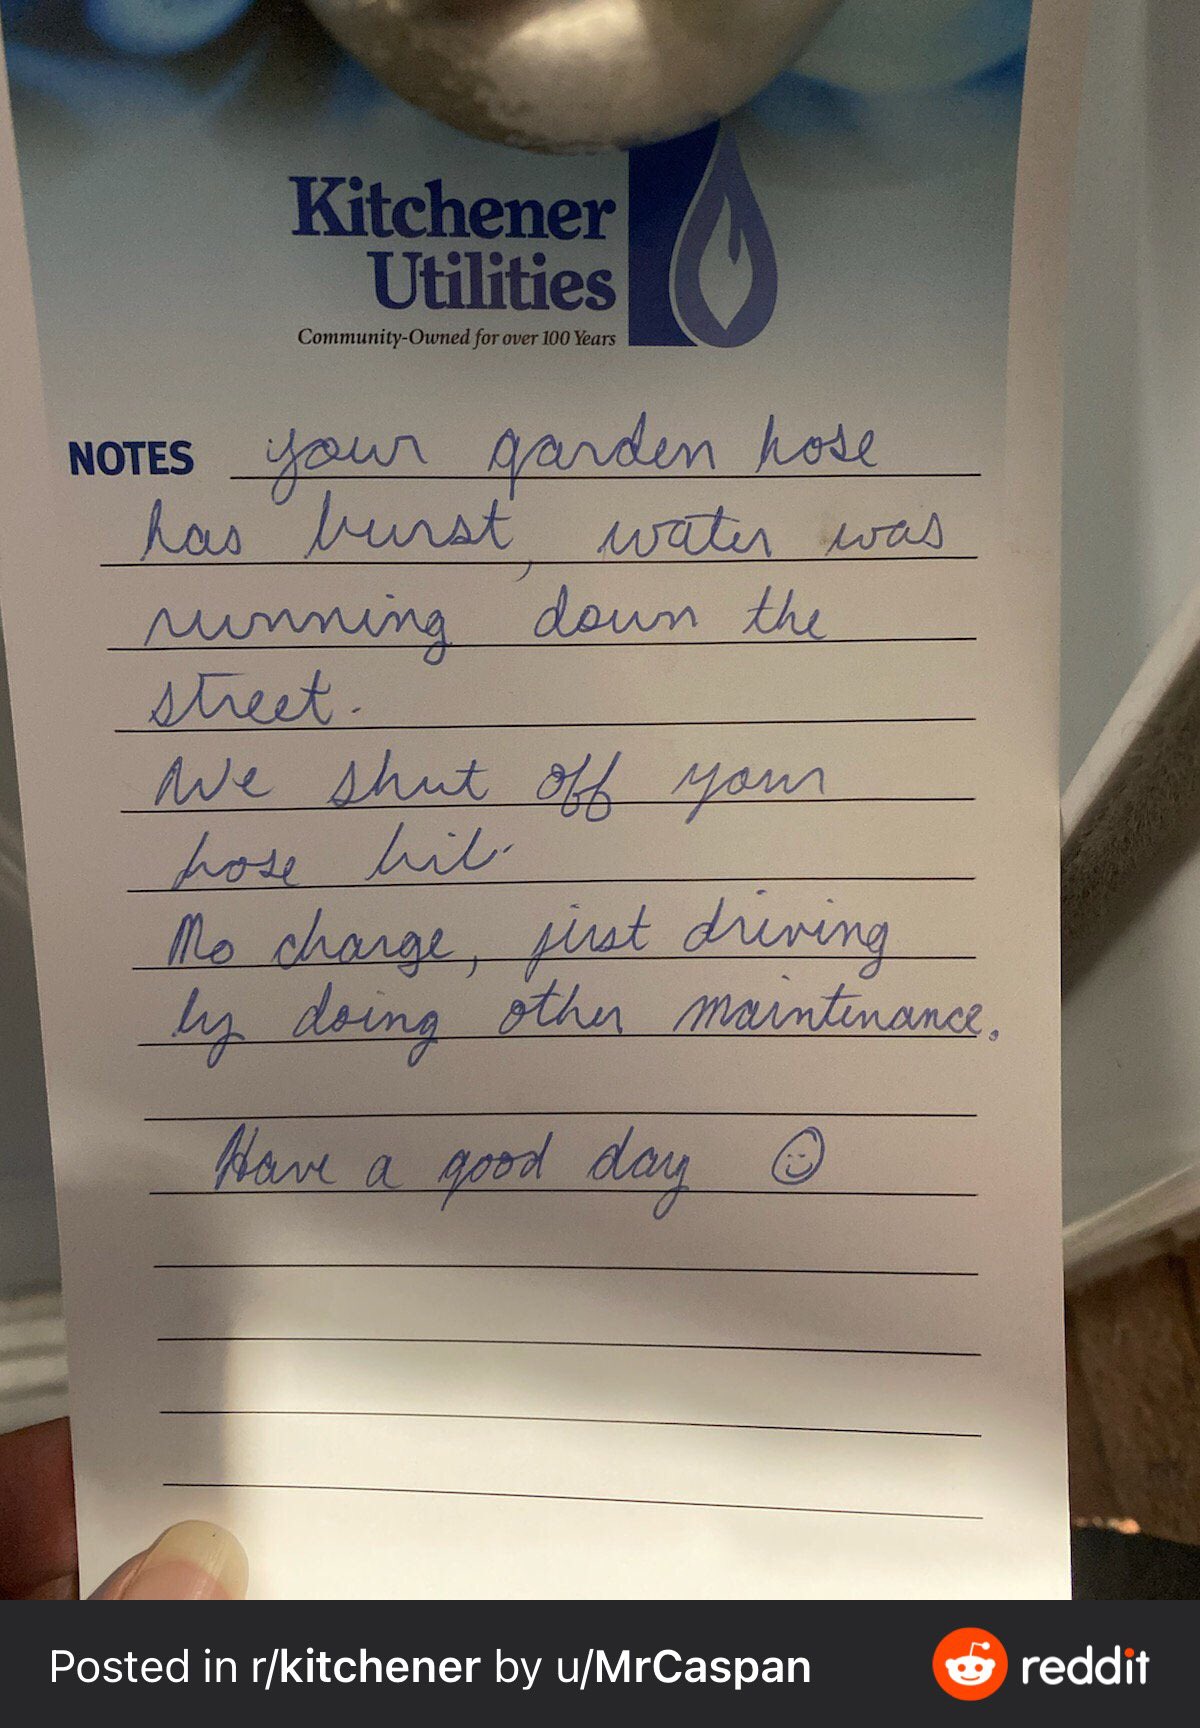 Kitchener
Utilities
Community-Owned for over 100 Years
NOTES your garden hose
has burst, water was
running down the
street.
We shut off your
hose bib.
No charge, just driving
by doing other maintenance.
Have a good day ☺
Posted in r/kitchener by u/MrCaspan
reddit